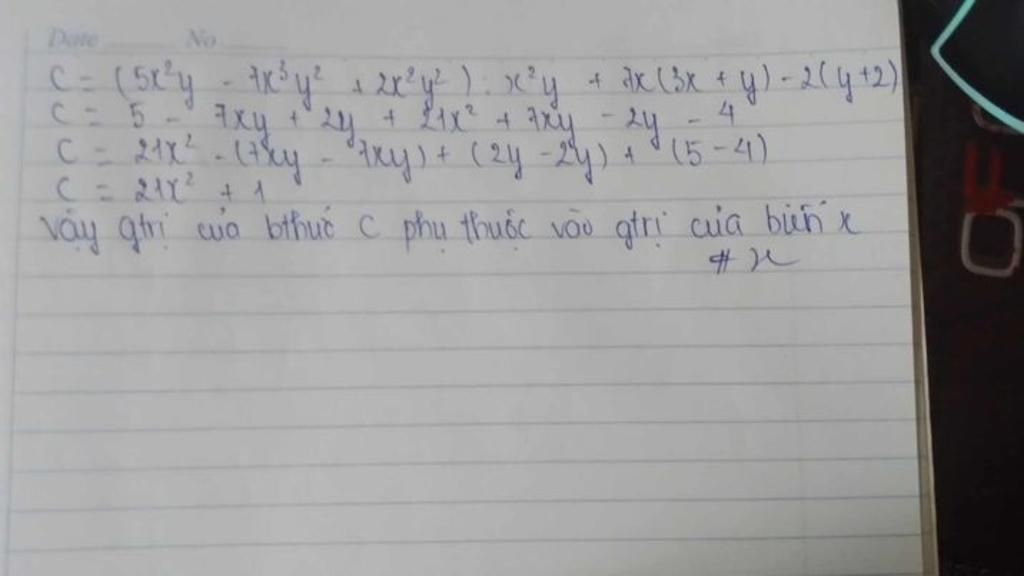 Date No
C = (5x²y - 7x³y² + 2x²y²) : x²y + 7x(3x + y) - 2(y+2)
C = 5 - 7xy + 2y + 21x² + 7xy - 2y - 4
C = 21x² - (7xy - 7xy) + (2y - 2y) + (5 - 4)
C = 21x² + 1
Vậy gtrị của bthức C phụ thuộc vào gtrị của biến x
# x